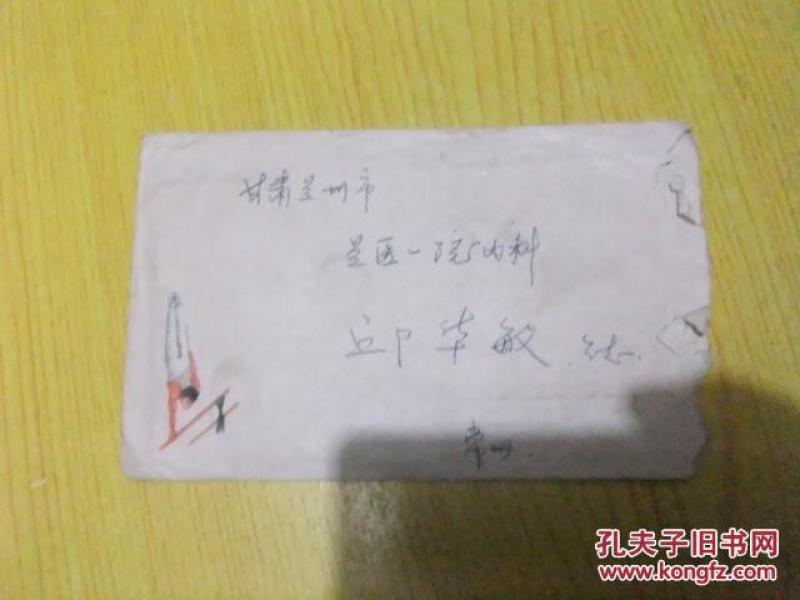 甘肃兰州市
兰医一院内科
邱华敏 同志
常州
孔夫子旧书网
www.kongfz.com